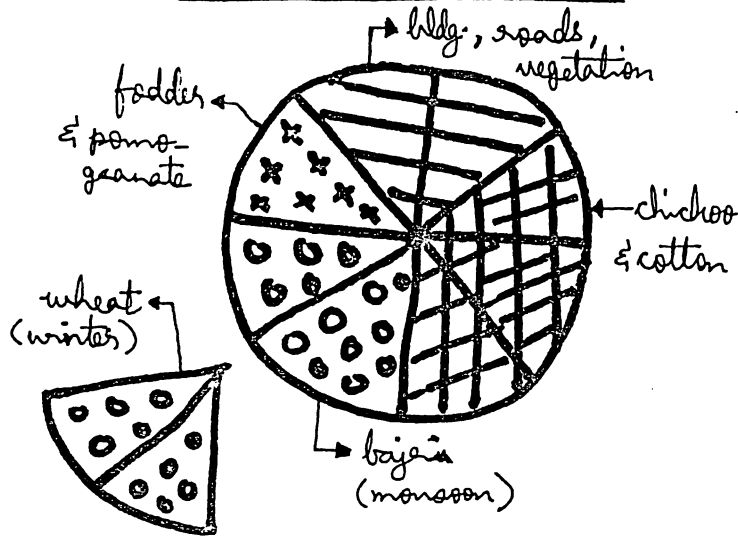 bldg., roads,
vegetation
fodder
& pomo-
granate
chickoo
& cotton
wheat
(winter)
bajeri
(monsoon)